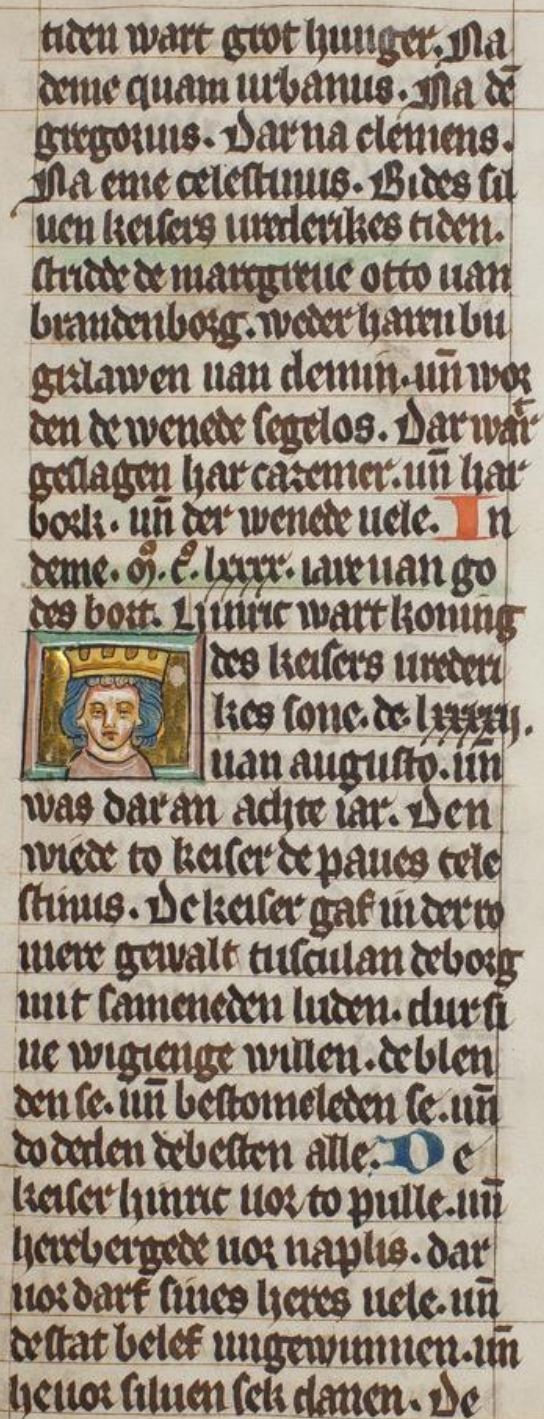 tiden wart grot hunger. Na
deme quam urbanus. Na dē
gregorius. Dar na clemens.
Na eme celestinus. Bi des sil
uen keisers urederikes tiden.
stridde de marcgreue otto uan
brandenborg. weder haren bu
gezlawen uan demin. un̄ wor
den de wenede segelos. Dar wart
geslagen har cazemer. un̄ har
bork. un̄ der wenede uele. In
deme. M. C. lxxxx. iare uan go
des bort. Hinric wart koning
des keisers urederi
kes sone. de. lxxxxij.
uan augusto. un̄
was dar an achte iar. Den
wiede to keiser de paues cele
stinus. De keiser gaf in der ro
mere gewalt tusculan de borg
mit sameneden luden. dur si
ne wigienge willen. de blen
den se. un̄ bestomeleden se. un̄
do deden de besten alle. De
keiser hinric uor to pulle. un̄
herebergede uor naplis. dar
uor darf sines heres uele. un̄
de stat belef ungewunnen. un̄
he uor siluen sek danen. De